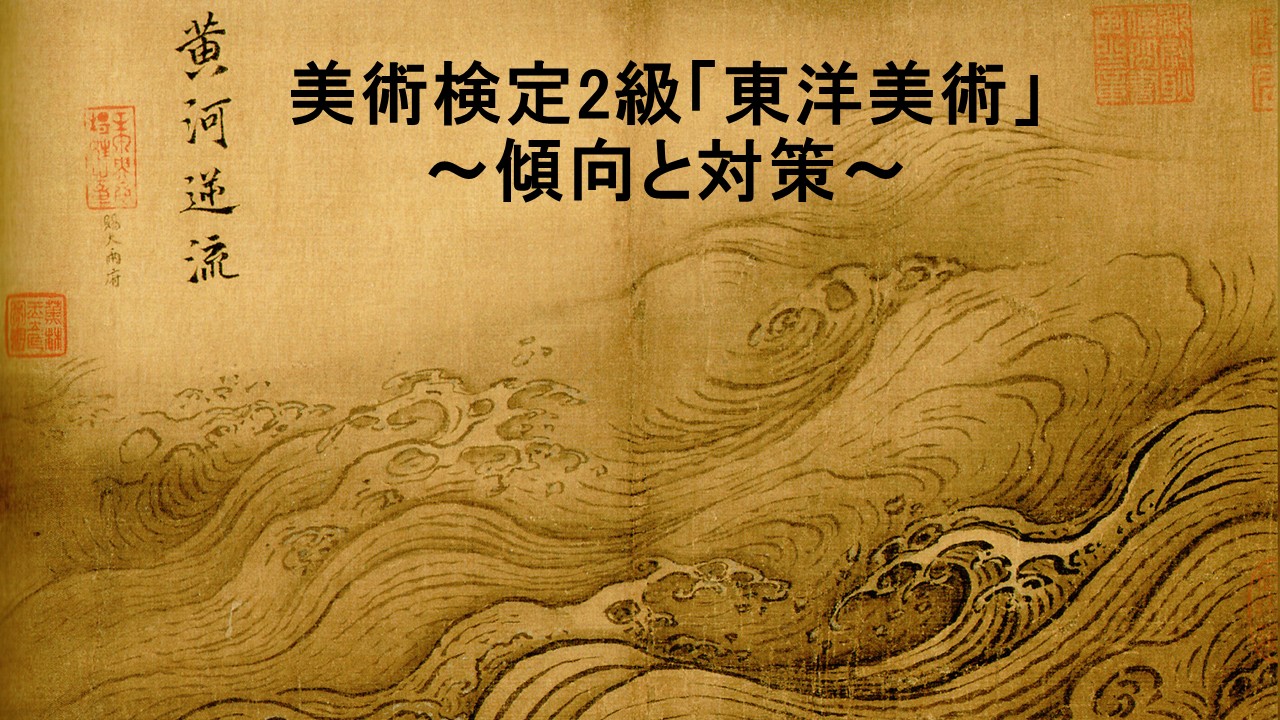 美術検定2級「東洋美術」
～傾向と対策～
黄河逆流
賜大両府